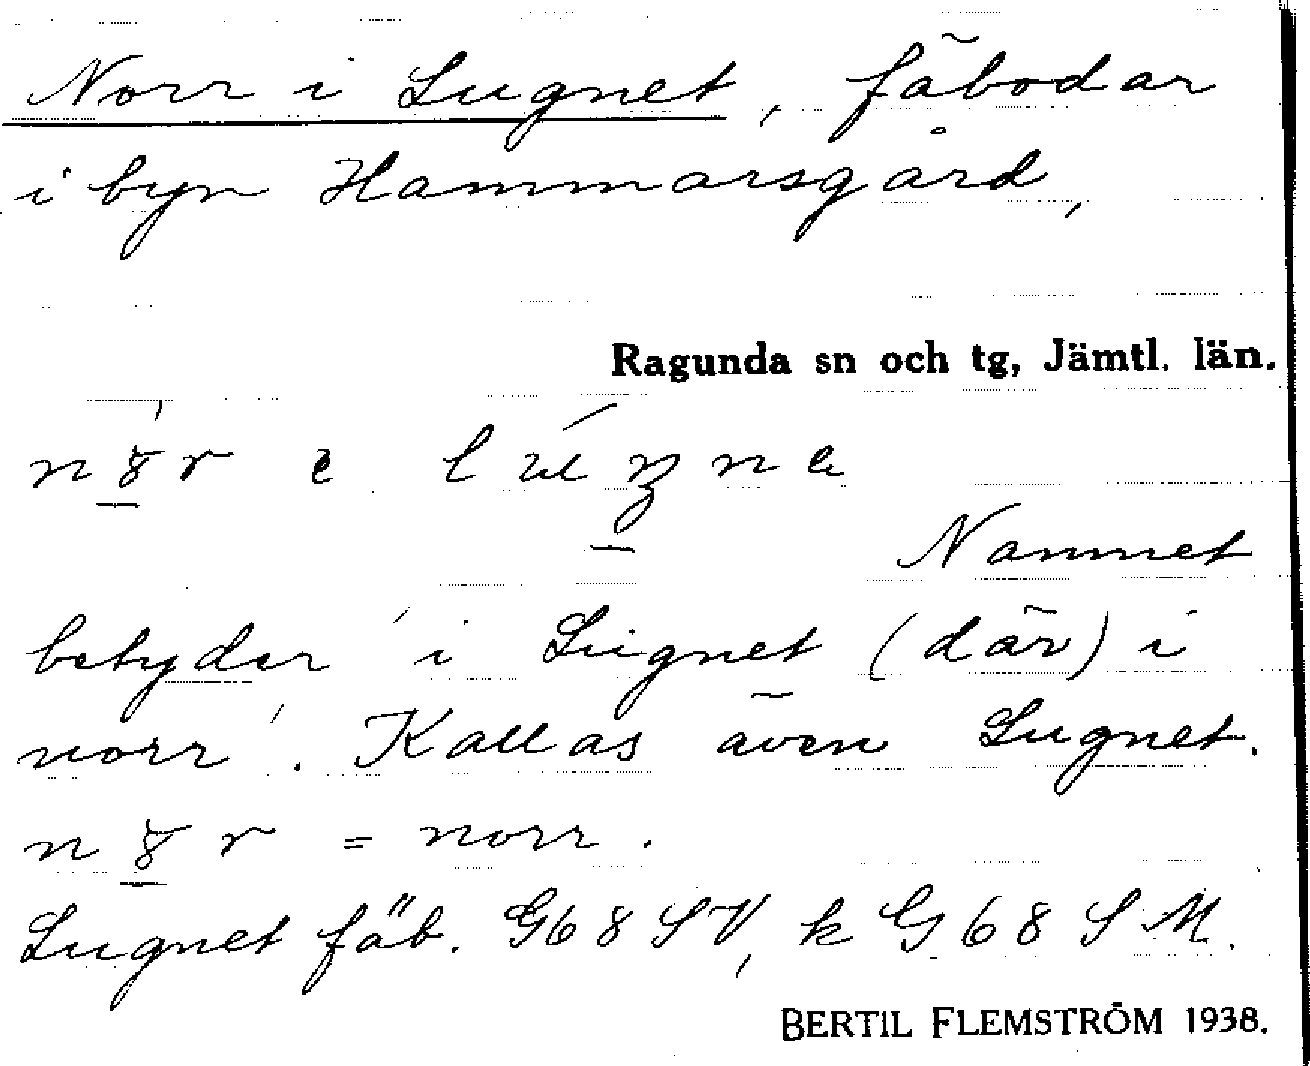 Norr i Lugnet, fäbodar
i byn Hammarsgård,
Ragunda sn och tg, Jämtl. län.
Namnet
betyder 'i Lugnet (där) i
norr'. Kallas även Lugnet.
= norr.
Lugnet fäb. G68SV, k G68SM.
BERTIL FLEMSTRÖM 1938.